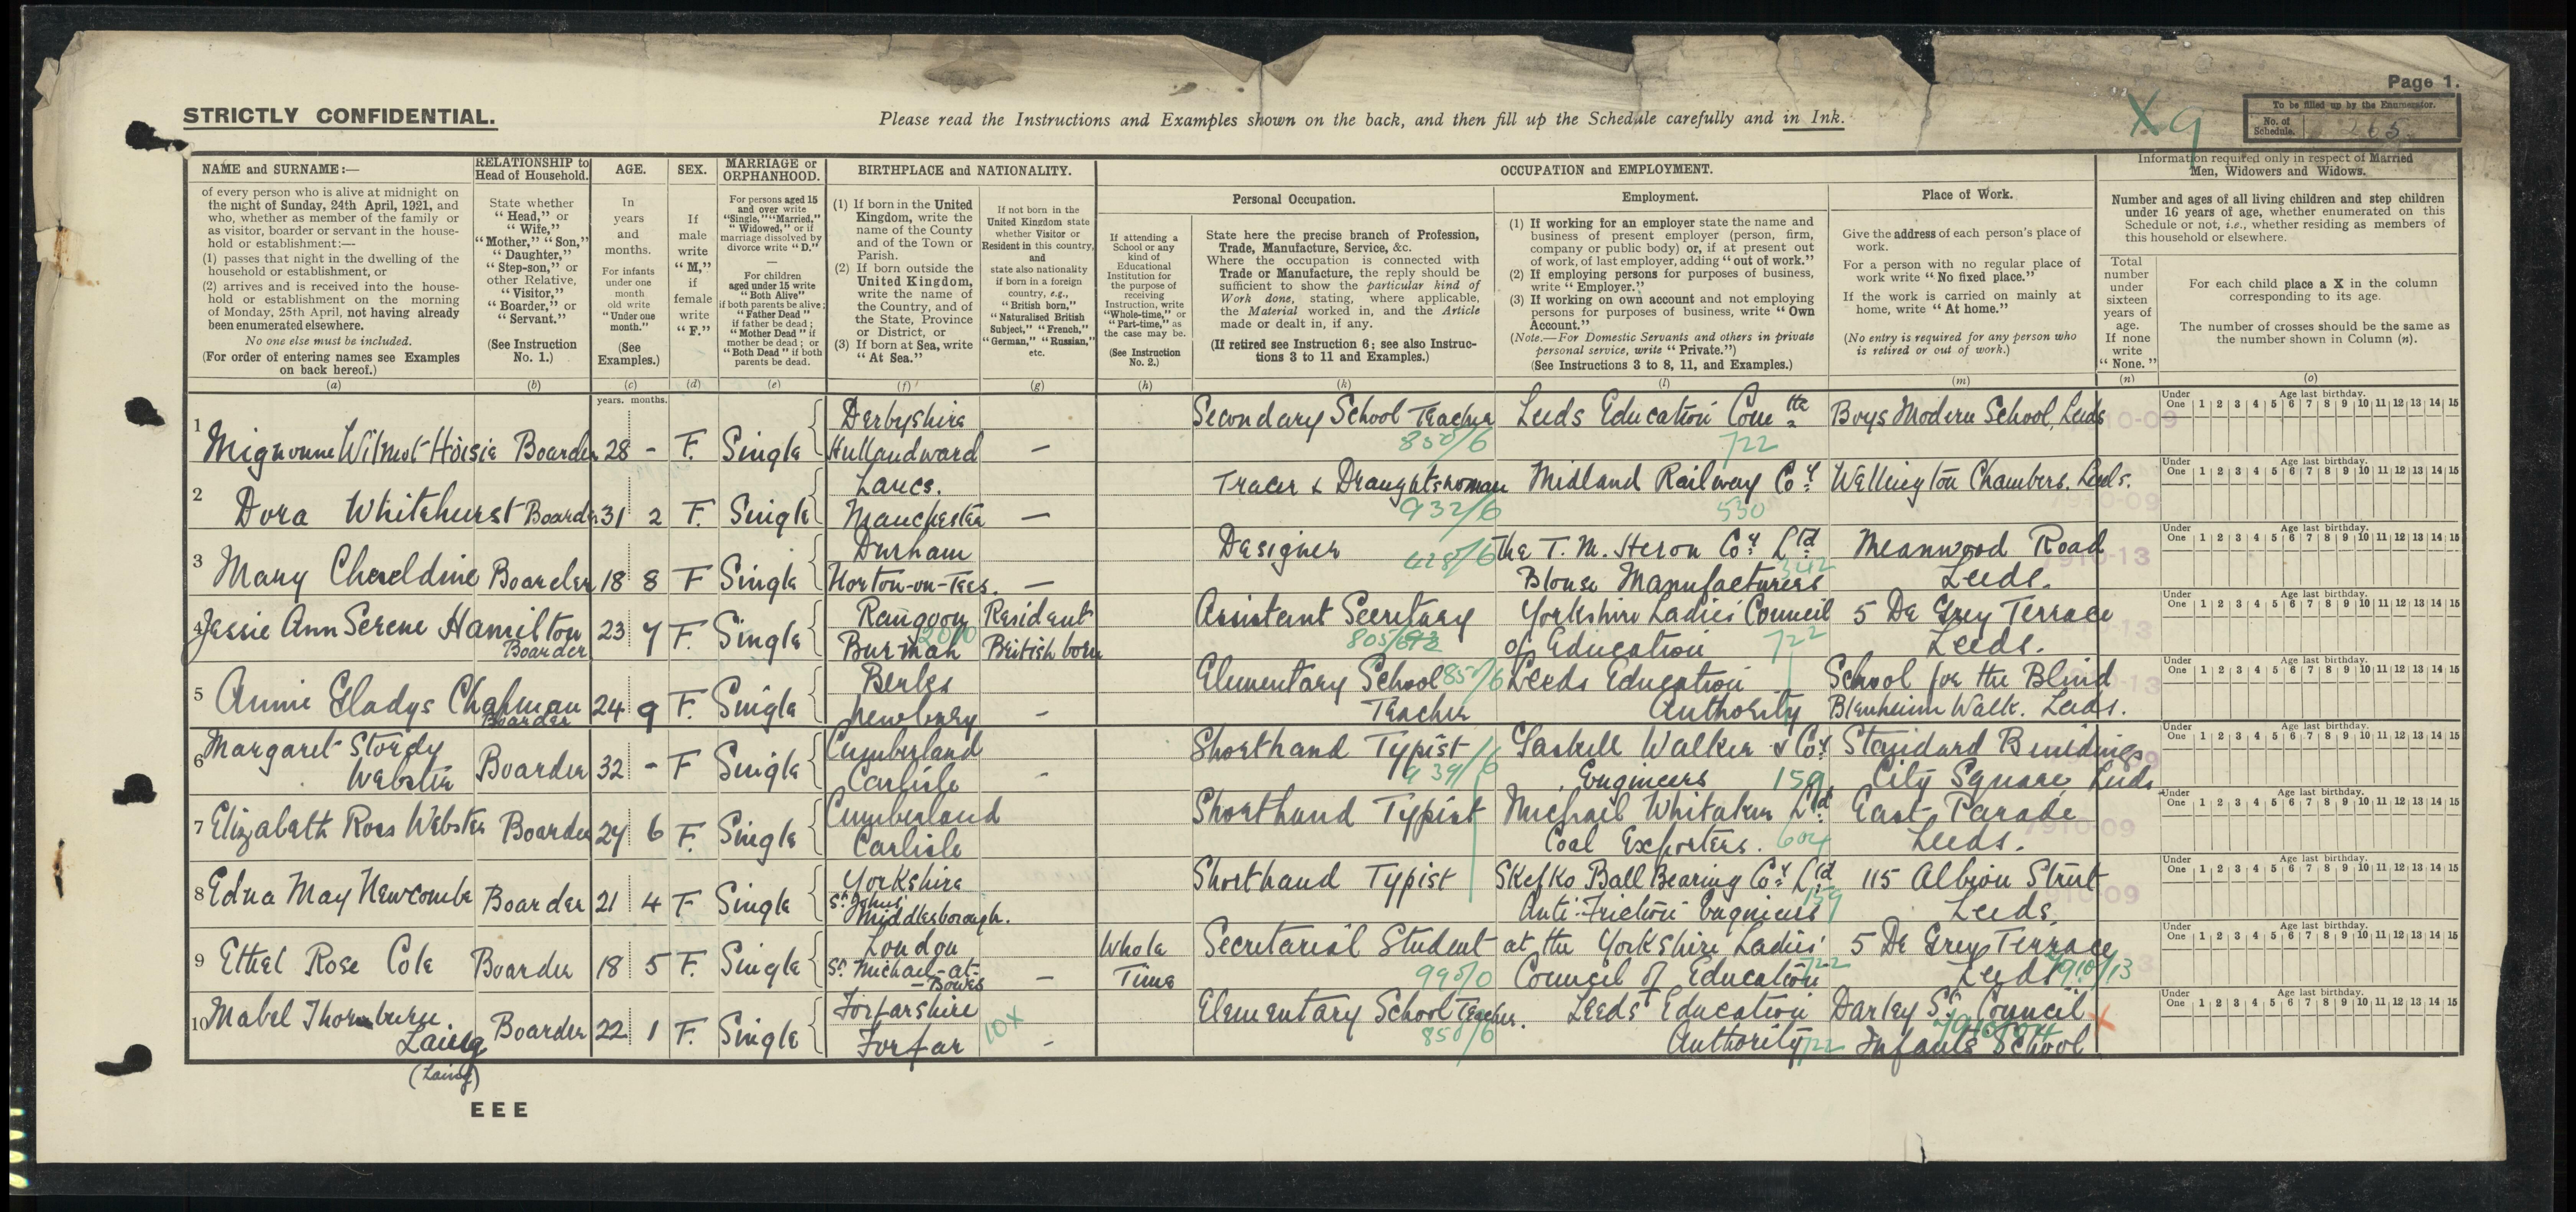 Page 1.
STRICTLY CONFIDENTIAL.
Please read the Instructions and Examples shown on the back, and then fill up the Schedule carefully and in Ink.
X9
To be filled up by the Enumerator.
No. of Schedule. 265
NAME and SURNAME:—
of every person who is alive at midnight on
the night of Sunday, 24th April, 1921, and
who, whether as member of the family or
as visitor, boarder or servant in the house-
hold or establishment:—
(1) passes that night in the dwelling of the
household or establishment, or
(2) arrives and is received into the house-
hold or establishment on the morning
of Monday, 25th April, not having already
been enumerated elsewhere.
No one else must be included.
(For order of entering names see Examples
on back hereof.)
(a)
RELATIONSHIP to
Head of Household.
State whether
"Head," or
"Wife,"
"Mother," "Son,"
"Daughter,"
"Step-son," or
other Relative,
"Visitor,"
"Boarder," or
"Servant."
(See Instruction
No. 1.)
(b)
AGE.
In
years
and
months.
For infants
under one
month
old write
"Under one
month."
(See
Examples.)
(c)
SEX.
If
male
write
"M,"
if
female
write
"F."
(d)
MARRIAGE or
ORPHANHOOD.
For persons aged 15
and over write
"Single," "Married,"
"Widowed," or if
marriage dissolved by
divorce write "D."
—
For children
aged under 15 write
"Both Alive"
if both parents be alive;
"Father Dead"
if father be dead;
"Mother Dead" if
mother be dead; or
"Both Dead" if both
parents be dead.
(e)
BIRTHPLACE and NATIONALITY.
(1) If born in the United
Kingdom, write the
name of the County
and of the Town or
Parish.
(2) If born outside the
United Kingdom,
write the name of
the Country, and of
the State, Province
or District, or
(3) If born at Sea, write
"At Sea."
(f)
If not born in the
United Kingdom state
whether Visitor or
Resident in this country,
and
state also nationality
if born in a foreign
country, e.g.,
"British born,"
"Naturalised British
Subject," "French,"
"German," "Russian,"
etc.
(g)
OCCUPATION and EMPLOYMENT.
If attending a
School or any
kind of
Educational
Institution for
the purpose of
receiving
Instruction, write
"Whole-time," or
"Part-time," as
the case may be.
(See Instruction
No. 2.)
(h)
Personal Occupation.
State here the precise branch of Profession,
Trade, Manufacture, Service, &c.
Where the occupation is connected with
Trade or Manufacture, the reply should be
sufficient to show the particular kind of
Work done, stating, where applicable,
the Material worked in, and the Article
made or dealt in, if any.
(If retired see Instruction 6; see also Instruc-
tions 3 to 11 and Examples.)
(k)
Employment.
(1) If working for an employer state the name and
business of present employer (person, firm,
company or public body) or, if at present out
of work, of last employer, adding "out of work."
(2) If employing persons for purposes of business,
write "Employer."
(3) If working on own account and not employing
persons for purposes of business, write "Own
Account."
(Note.—For Domestic Servants and others in private
personal service, write "Private.")
(See Instructions 3 to 8, 11, and Examples.)
(l)
Place of Work.
Give the address of each person's place of
work.
For a person with no regular place of
work write "No fixed place."
If the work is carried on mainly at
home, write "At home."
(No entry is required for any person who
is retired or out of work.)
(m)
Information required only in respect of Married
Men, Widowers and Widows.
Number and ages of all living children and step children
under 16 years of age, whether enumerated on this
Schedule or not, i.e., whether residing as members of
this household or elsewhere.
Total
number
under
sixteen
years of
age.
If none
write
"None."
(n)
For each child place a X in the column
corresponding to its age.
The number of crosses should be the same as
the number shown in Column (n).
(o)
years. months.
1 Mignonne Wilmot Hoisie Boarder 28 - F. Single Derbyshire Hullandward — Secondary School Teacher 850/6 Leeds Education Comtte 722 Boys Modern School, Leeds
Under One 1 2 3 4 5 6 7 8 9 10 11 12 13 14 15 Age last birthday.
2 Dora Whitehurst Boarder 31 2 F. Single Lancs. Manchester — Tracer & Draughtswoman 932/6 Midland Railway Coy. 530 Wellington Chambers. Leeds.
Under One 1 2 3 4 5 6 7 8 9 10 11 12 13 14 15 Age last birthday.
3 Mary Boarder 18 8 F Single Durham Horton-on-Tees. — Designer 428/6 The T. M. Heron Coy. Ltd Blouse Manufacturers Meanwood Road Leeds.
Under One 1 2 3 4 5 6 7 8 9 10 11 12 13 14 15 Age last birthday.
4 Jessie Ann Serene Hamilton Boarder 23 7 F. Single Rangoon Burmah Resident British born Assistant Secretary Yorkshire Ladies' Council of Education 722 5 De Grey Terrace Leeds.
Under One 1 2 3 4 5 6 7 8 9 10 11 12 13 14 15 Age last birthday.
5 Annie Gladys Chapman Boarder 24 9 F. Single Berks Newbury - Elementary School Teacher 850/6 Leeds Education Authority School for the Blind Blenheim Walk. Leeds.
Under One 1 2 3 4 5 6 7 8 9 10 11 12 13 14 15 Age last birthday.
6 Margaret Stordy Webster Boarder 32 - F Single Cumberland Carlisle - Shorthand Typist 939/6 Gaskell Walker & Coy. Engineers 159 Standard Buildings City Square, Leeds
Under One 1 2 3 4 5 6 7 8 9 10 11 12 13 14 15 Age last birthday.
7 Elizabeth Ross Webster Boarder 27 6 F. Single Cumberland Carlisle Shorthand Typist Michail Whitaker Ltd Coal Exporters. 604 East Parade Leeds.
Under One 1 2 3 4 5 6 7 8 9 10 11 12 13 14 15 Age last birthday.
8 Edna May Newcombe Boarder 21 4 F Single Yorkshire St. Johns' Middlesborough. Shorthand Typist Skefko Ball Bearing Coy. Ltd Anti-Friction Engineers 159 115 Albion Street Leeds.
Under One 1 2 3 4 5 6 7 8 9 10 11 12 13 14 15 Age last birthday.
9 Ethel Rose Cole Boarder 18 5 F. Single London St. Michael-at-Bowes — Whole Time Secretarial Student 990/0 at the Yorkshire Ladies' Council of Education 722 5 De Grey Terrace Leeds 7910/13
Under One 1 2 3 4 5 6 7 8 9 10 11 12 13 14 15 Age last birthday.
10 Mabel Thornburn Laing Boarder 22 1 F. Single Forfarshire Forfar 10X - Elementary School Teacher. 850/6 Leeds Education Authority 722 Darley St. Council Infants School X
Under One 1 2 3 4 5 6 7 8 9 10 11 12 13 14 15 Age last birthday.
(Laing)
EEE